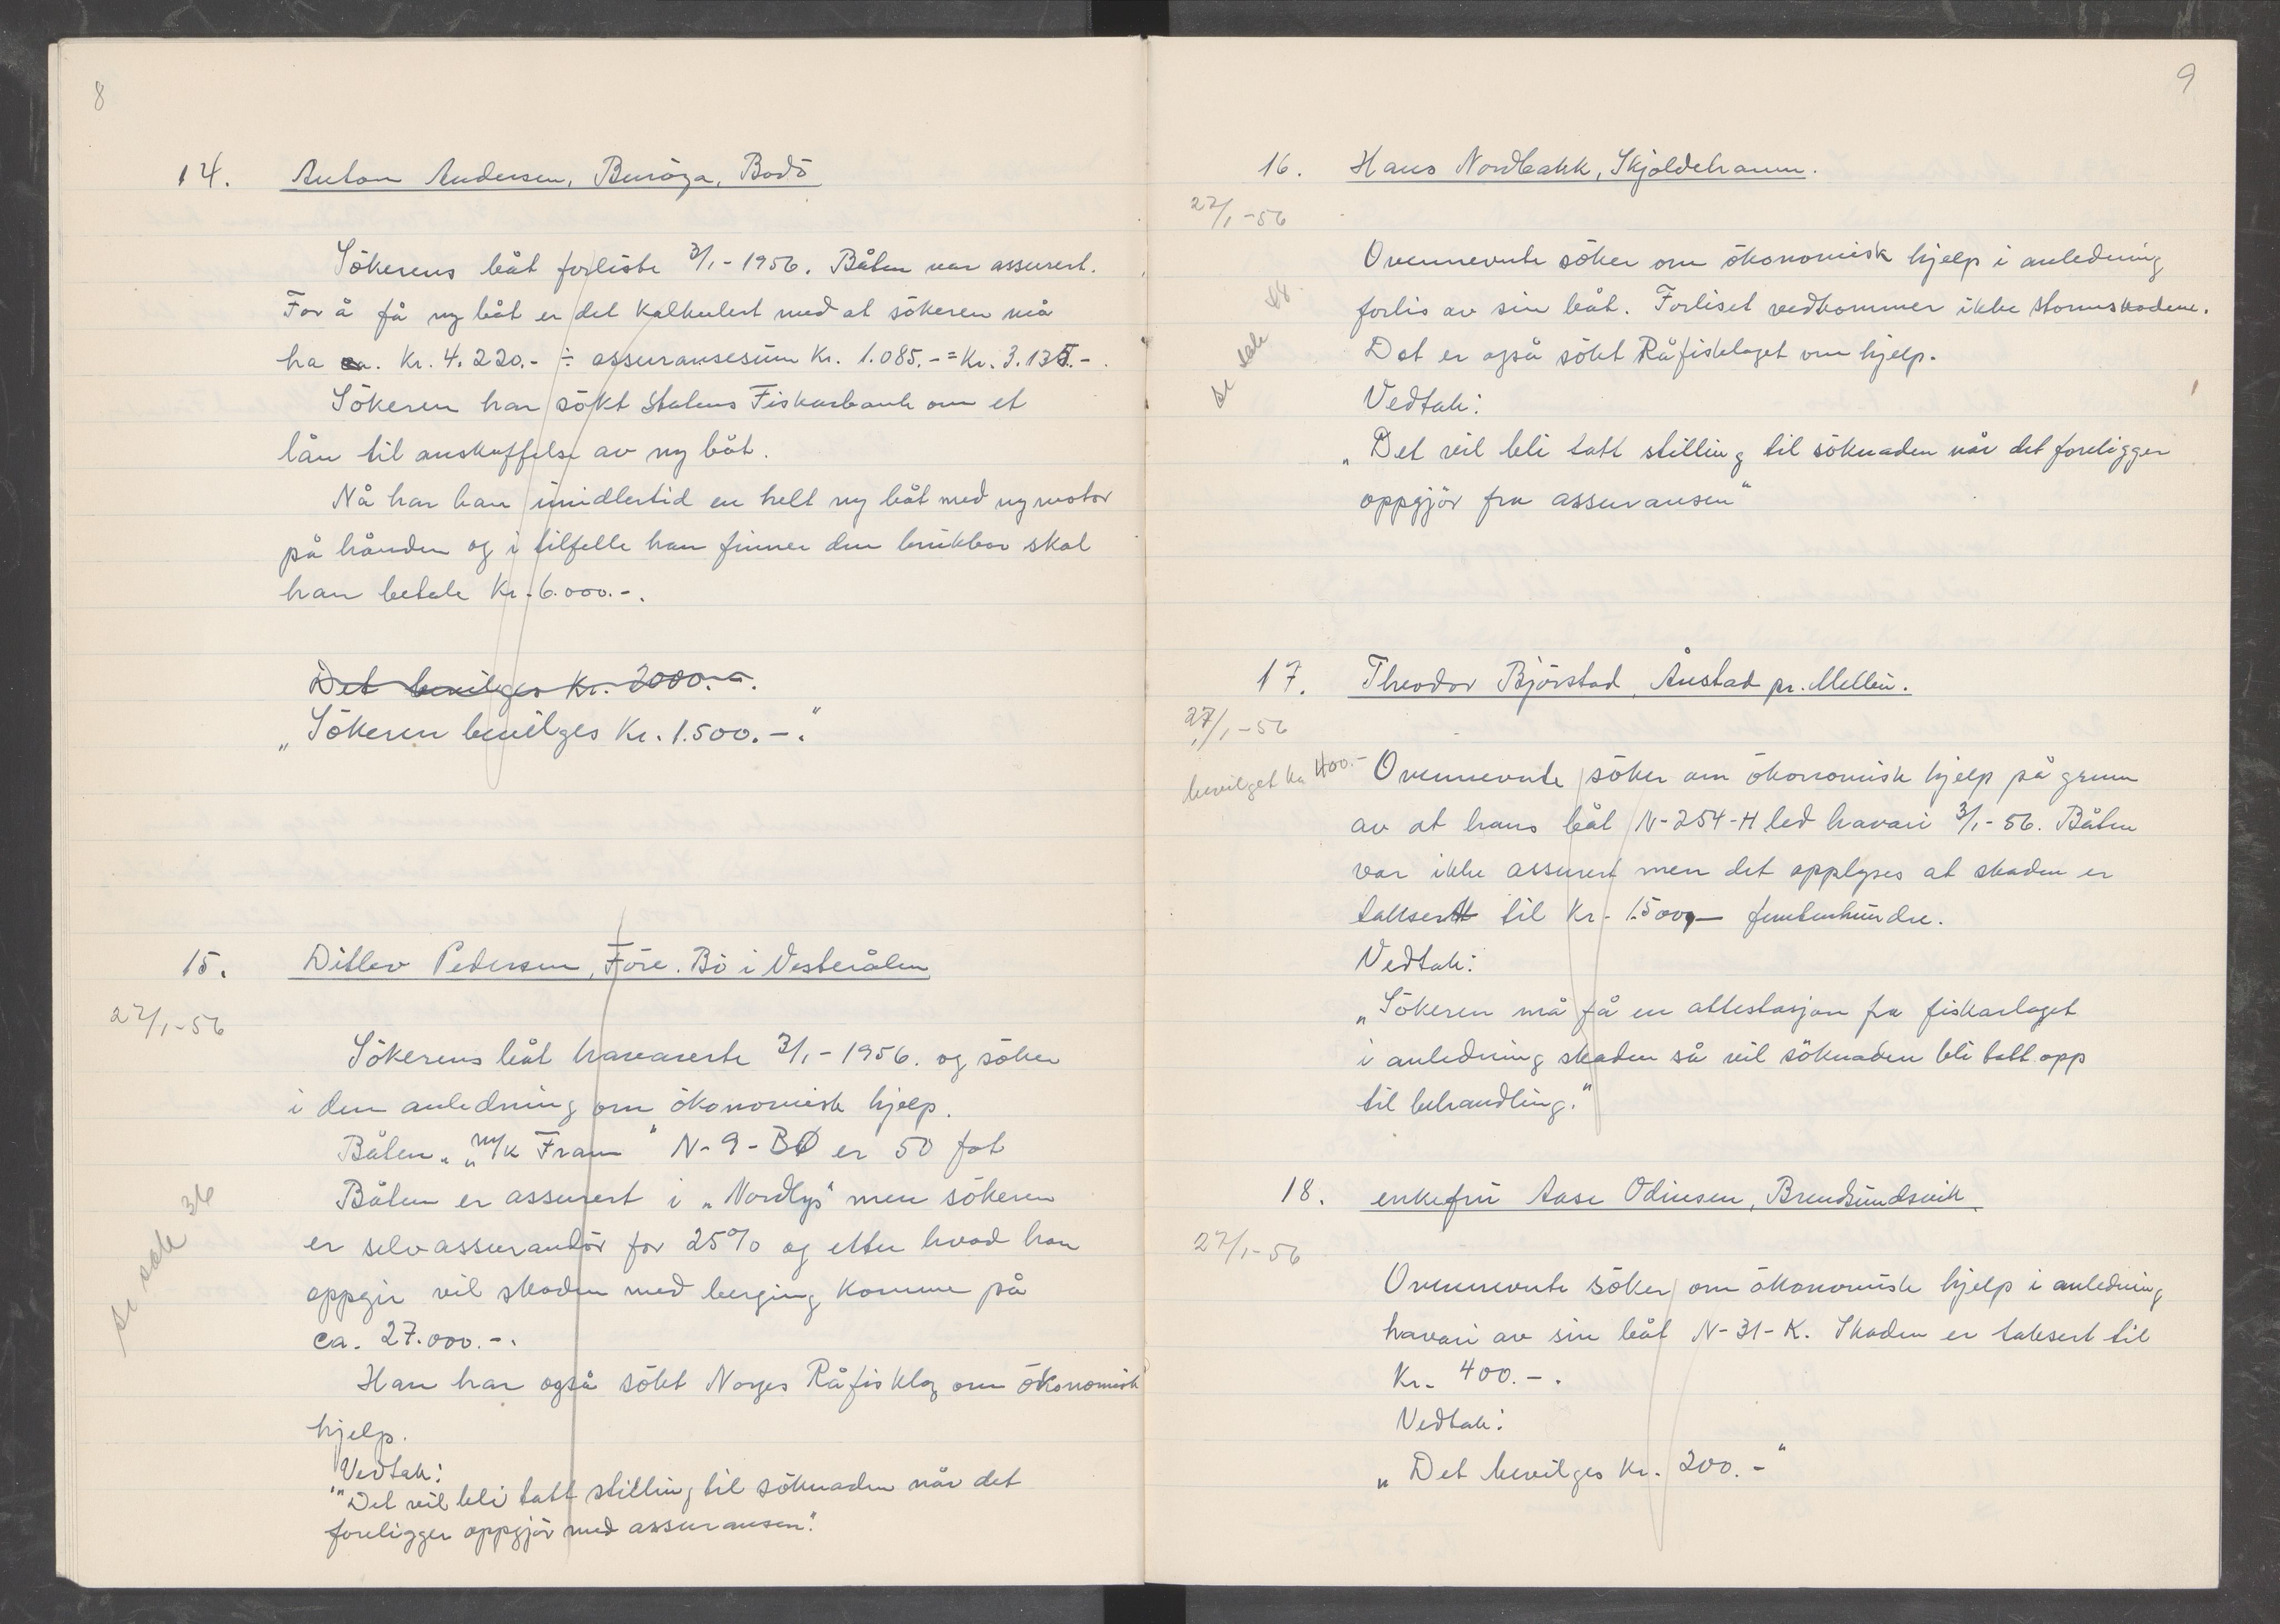 8
14. Anton Andersen, Buröya, Bodö
Sökerens båt forliste 3/1-1956. Båten var assurert.
For å få ny båt er det kalkulert med at sökeren må
ha ca. Kr. 4.220.- ÷ assuransesum Kr. 1.085.- = Kr. 3.135.-.
Sökeren har sökt Statens Fiskarbank om et
lån til anskaffelse av ny båt.
Nå har han imidlertid en helt ny båt med ny motor
på hånden og i tilfelle han finner den brukbar skal
han betale Kr. 6.000.-.
Det bevilges Kr. 2000.-.
„Sökeren bevilges Kr. 1.500.-."
15. Ditlev Pedersen, Före. Bö i Vesterålen
27/1-56
Sökerens båt havarerte 3/1-1956. og söker
i den anledning om ökonomisk hjelp.
Båten „m/k Fram" N-9-BØ er 50 fot
Båten er assurert i „Nordlys" men sökeren
er selvassurandör for 25% og etter hvad han
oppgir vil skaden med berging komme på
ca. 27.000.-.
se sak 36
Han har også sökt Norges Råfisklag om ökonomisk
hjelp.
Vedtak:
"Det vil bli tatt stilling til söknaden når det
foreligger oppgjör med assuransen."
9
16. Hans Nordbakk, Skjoldehamn.
27/1-56
Ovennevnte söker om ökonomisk hjelp i anledning
forlis av sin båt. Forliset vedkommer ikke stormskadene.
Det er også sökt Råfisklaget om hjelp.
se sak 48
Vedtak:
„Det vil bli tatt stilling til söknaden når det foreligger
oppgjör fra assuransen"
17. Theodor Björstad, Ånstad pr. Melbu.
27/1-56
bevilget kr 400.-
Ovennevnte söker om ökonomisk hjelp på grunn
av at hans båt N-254-H led havari 3/1-56. Båten
var ikke assurert men det opplyses at skaden er
taksert til Kr. 1.500,- femtenhundre.
Vedtak:
„Sökeren må få en attestasjon fra fiskarlaget
i anledning skaden så vil söknaden bli tatt opp
til behandling."
18. enkefru Aase Odinsen, Brendsundsvik.
27/1-56
Ovennevnte söker om ökonomisk hjelp i anledning
havari av sin båt N-31-K. Skaden er taksert til
Kr. 400.-.
Vedtak:
„Det bevilges Kr. 200.-"